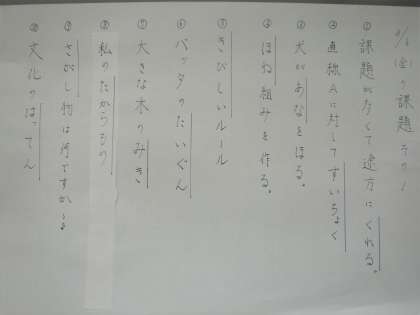 9/1(金)の課題 その1
① 課題が多くて途方にくれる。
② 直線Aに対してすいちょく
③ 犬があなをほる。
④ ほね組みを作る。
⑤ きびしいルール
⑥ バッタのたいぐん
⑦ 大きな木のみき
⑧ 私のたからもの
⑨ さがし物は何ですか。
⑩ 文化のはってん